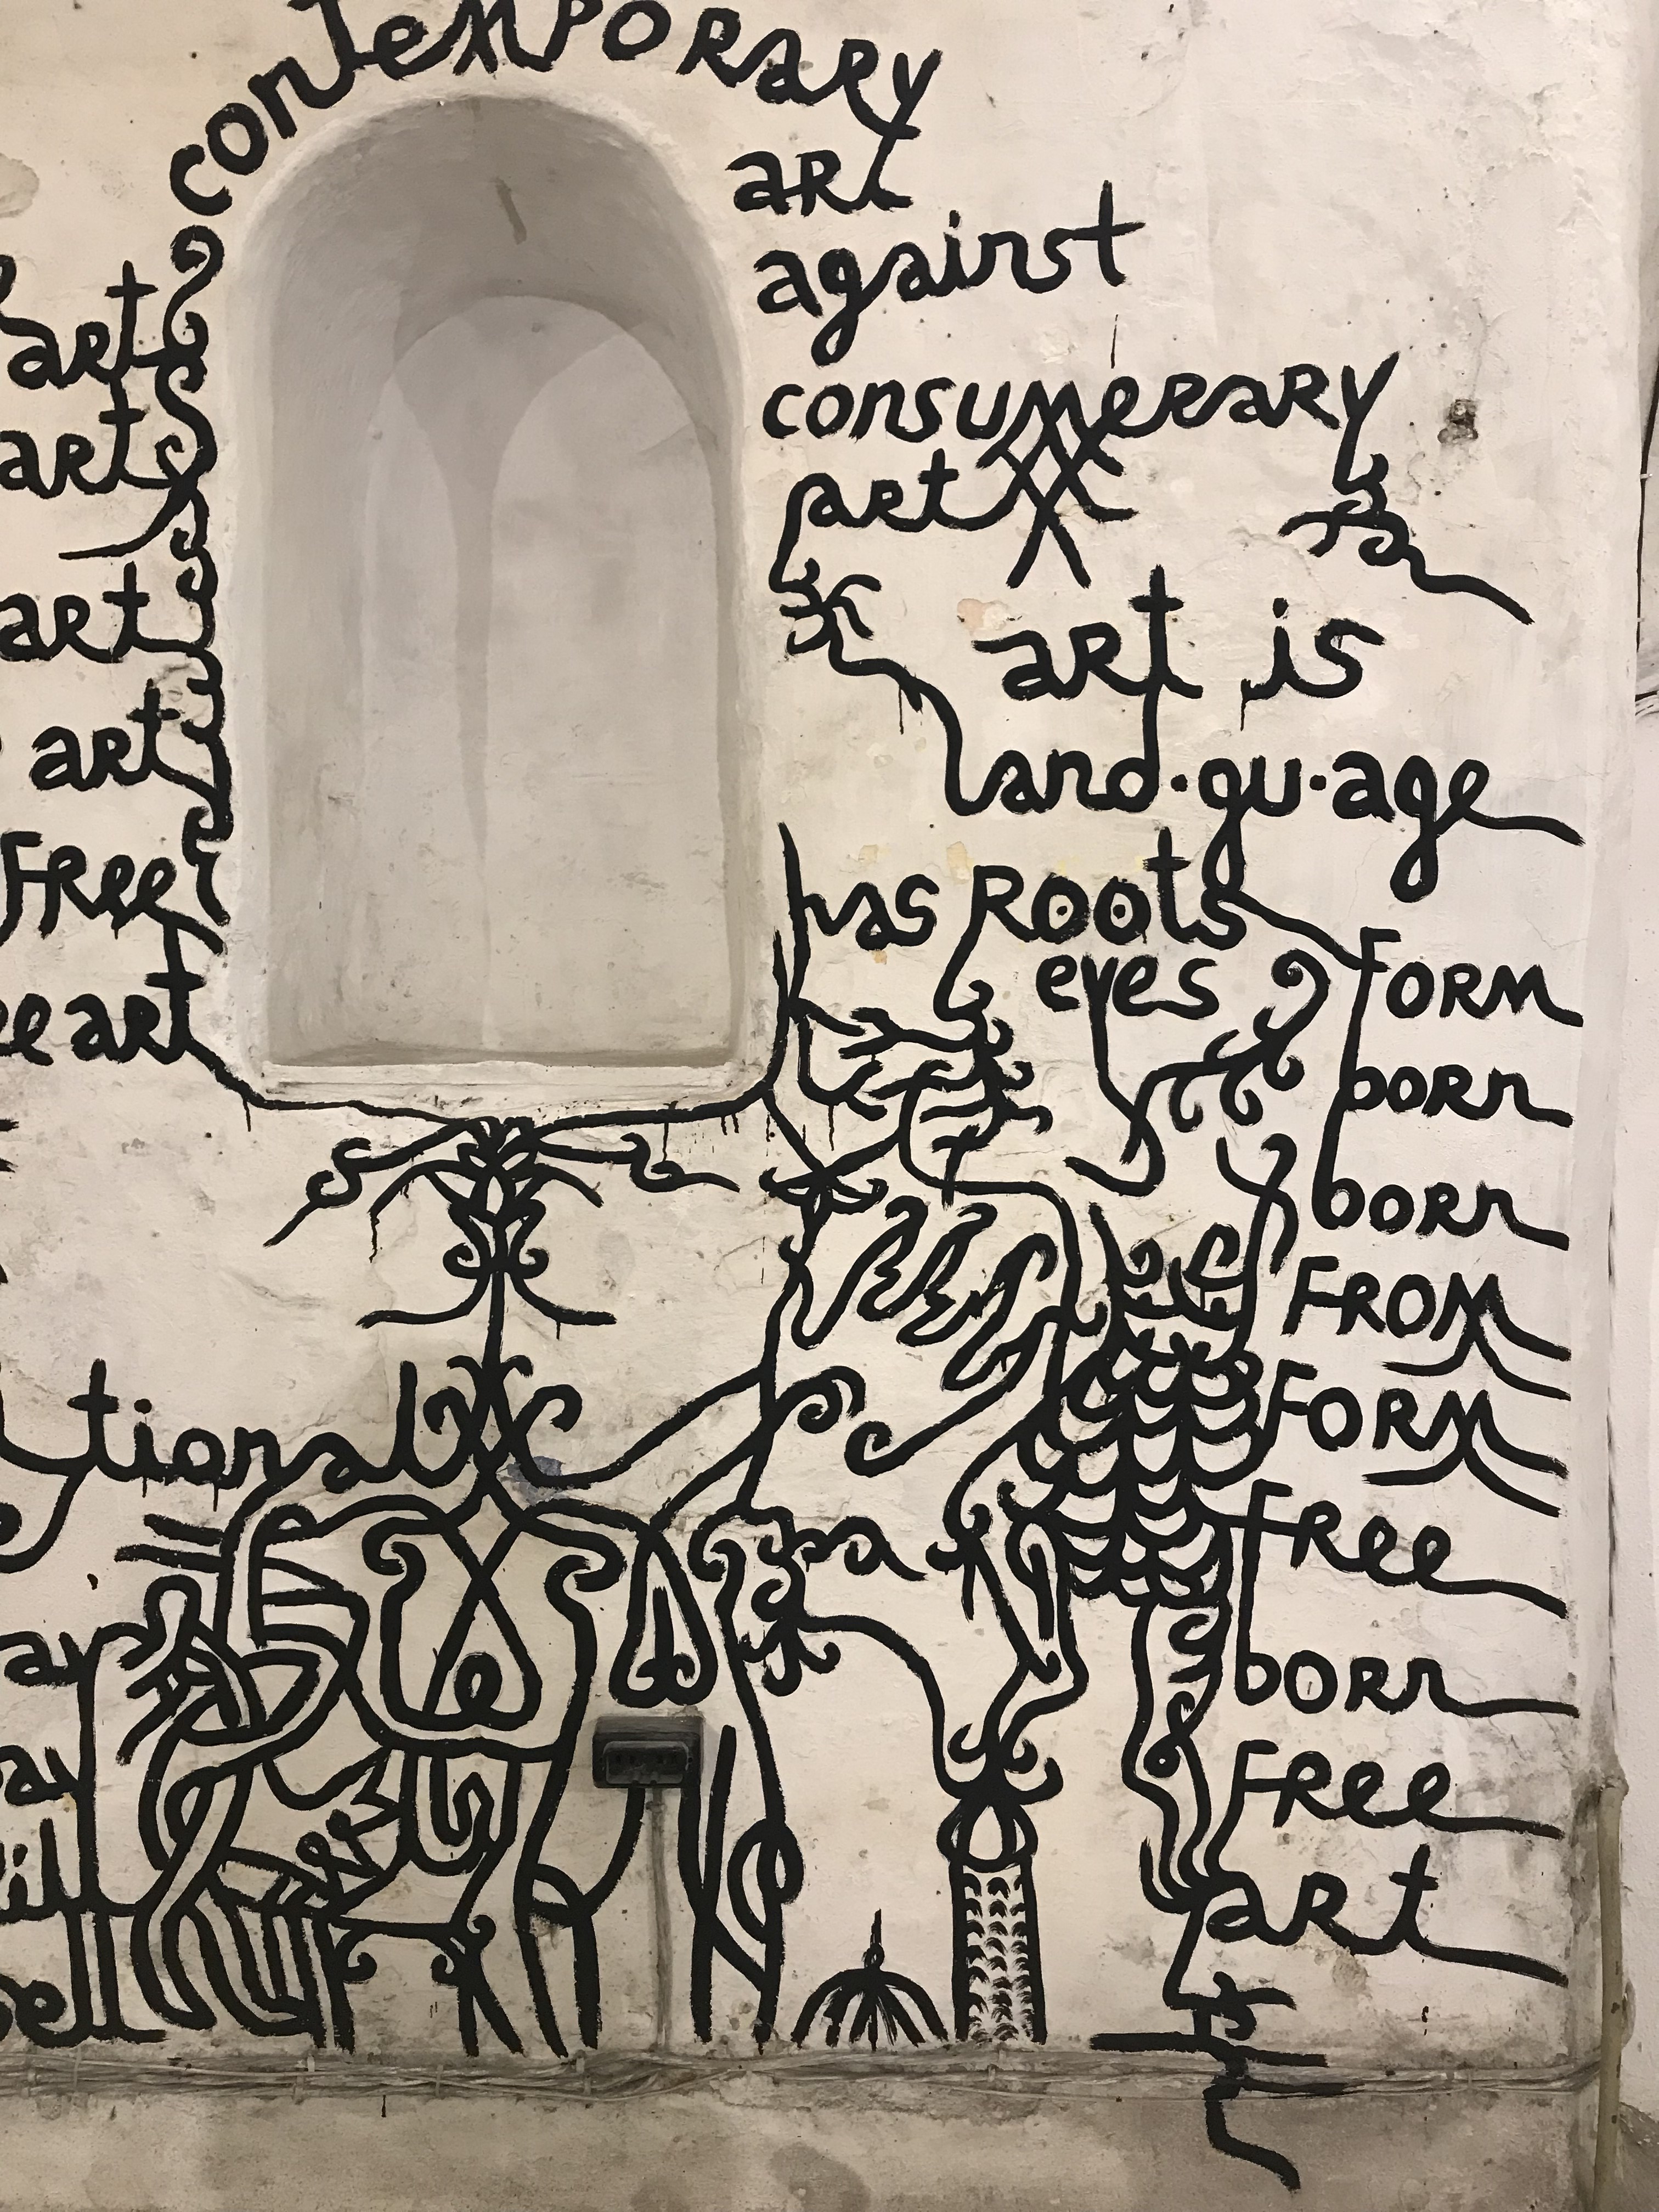 contemporary
art
against
consumerary
art
art is
land·gu·age
has Roots
eyes
Form
born
born
From
Form
Free
born
Free
art
art
art
art
art
Free
art
tional